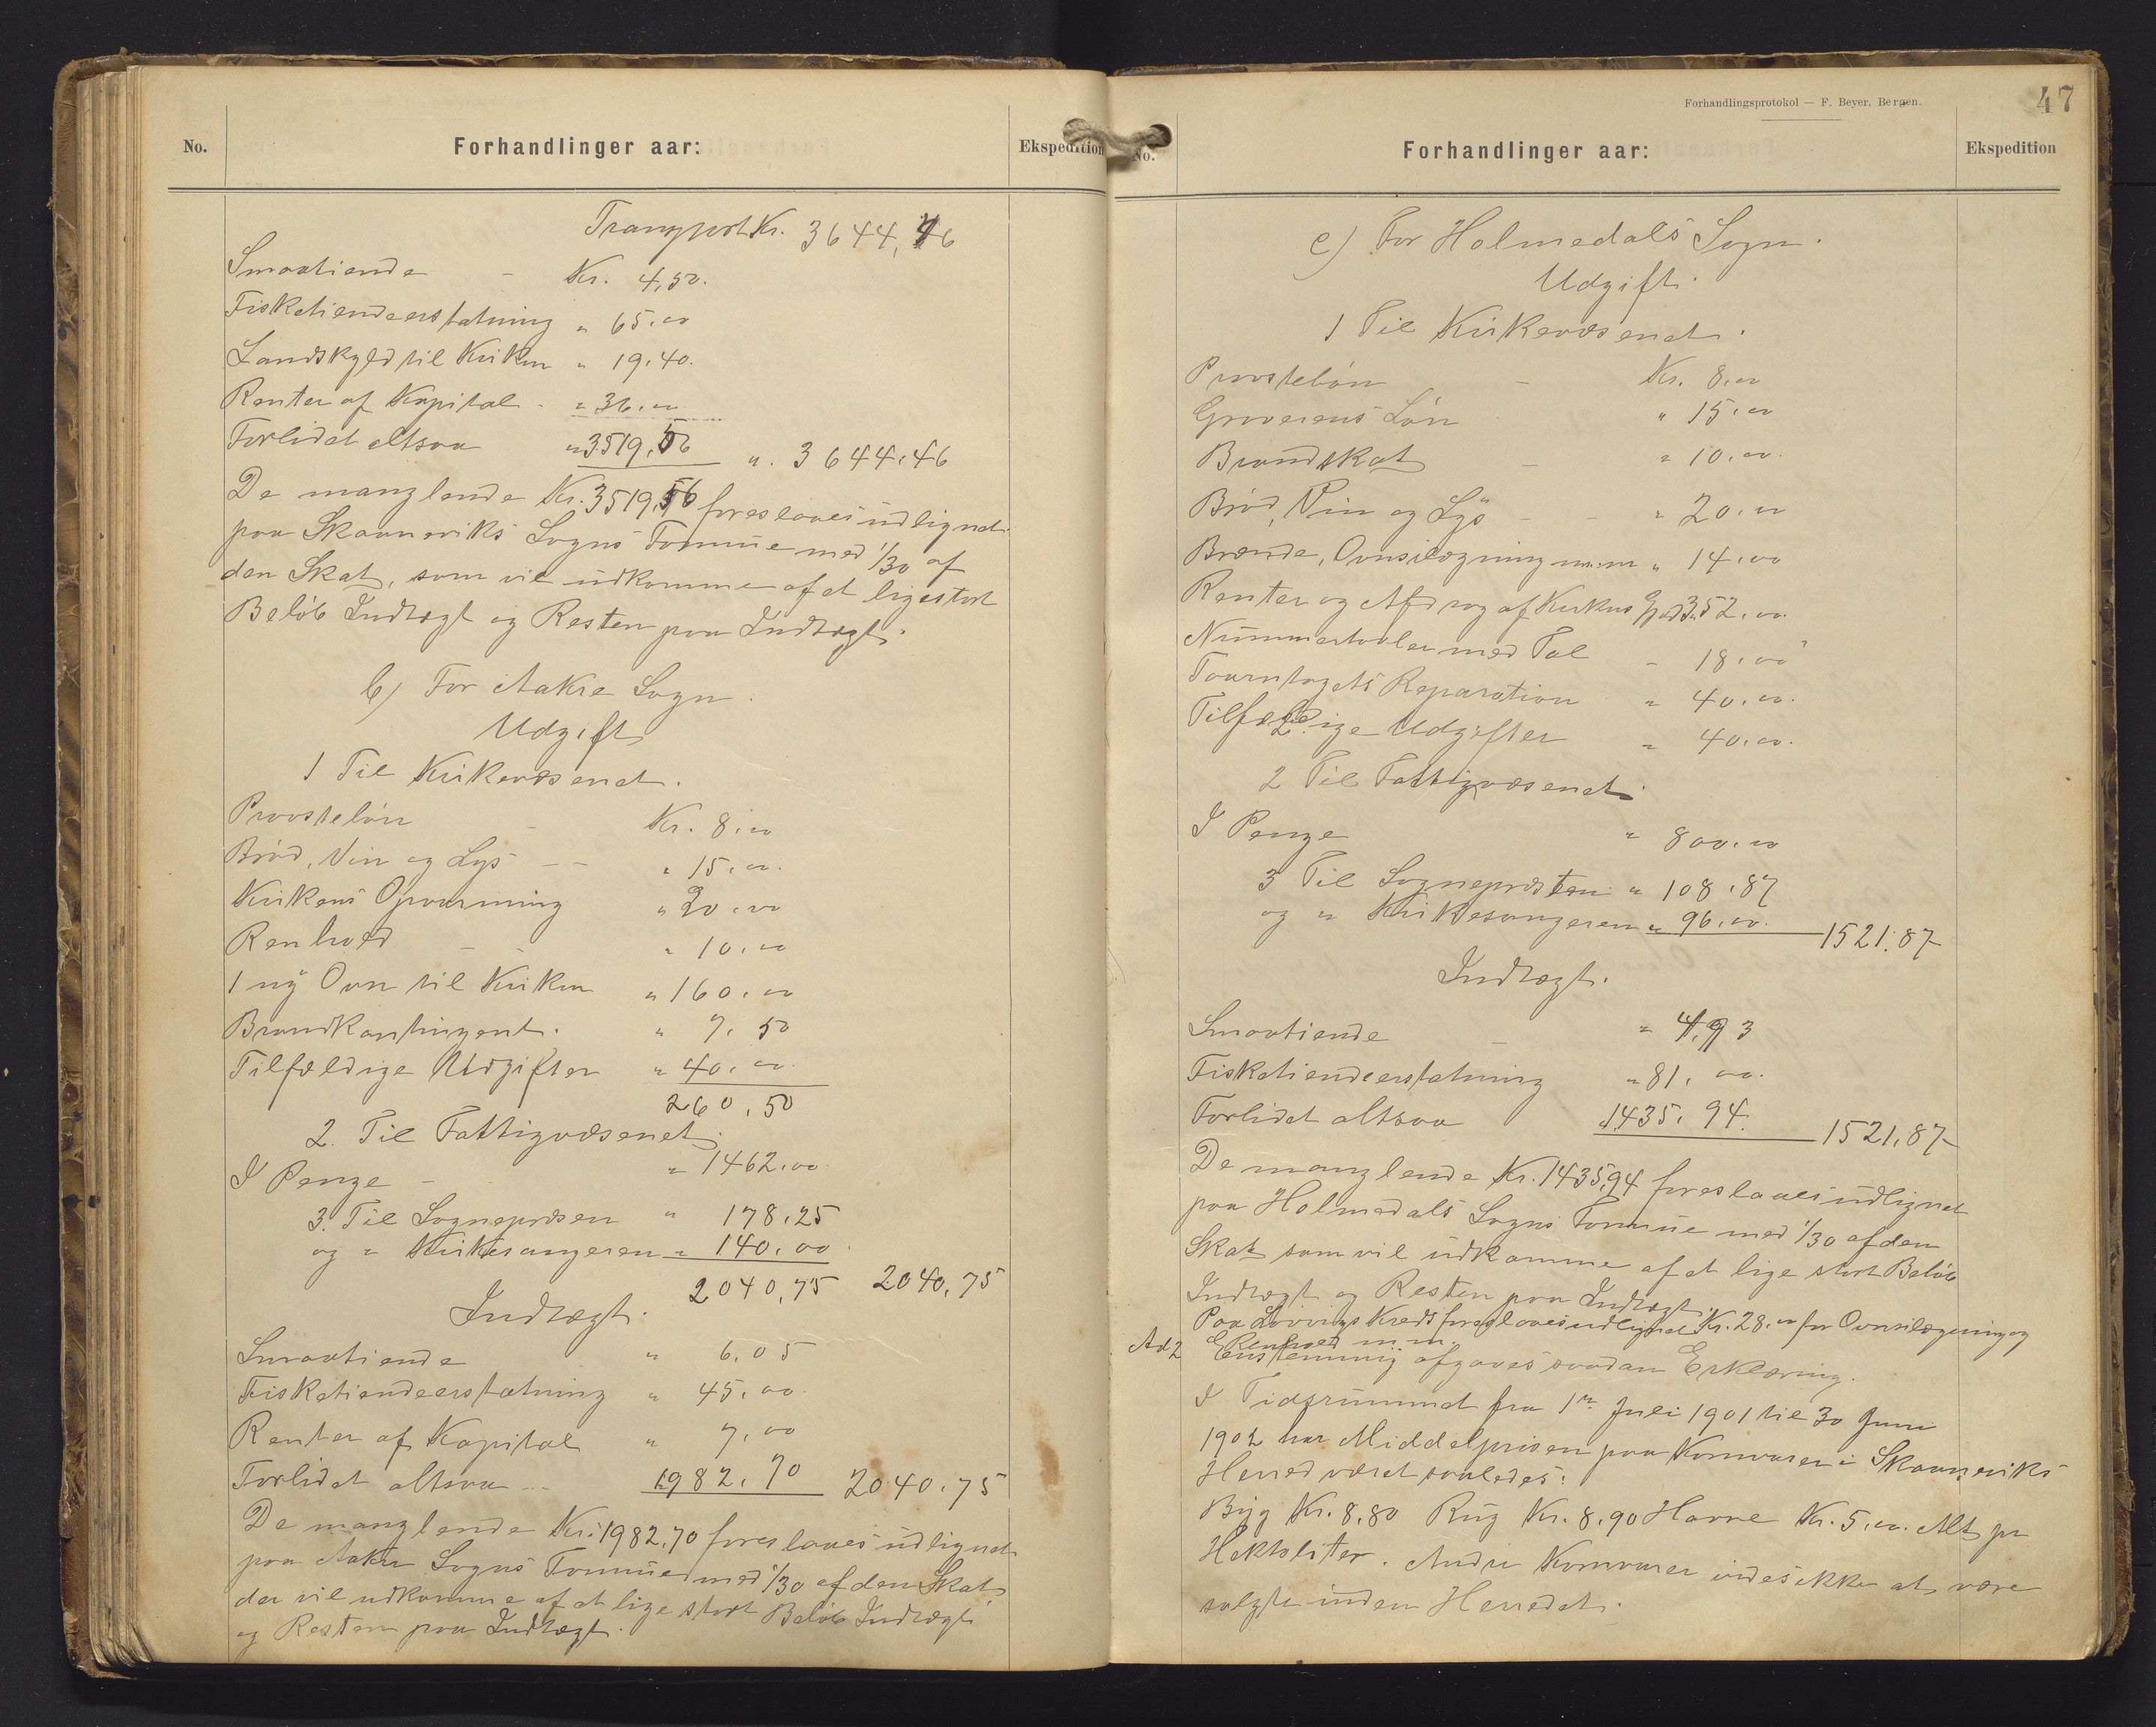 No.
Forhandlinger aar:
Ekspedition
Transport Kr. 3644,46
Smaatiende - Kr. 4,50.
Fisketiendeerstatning " 65,00
Landskyld til Kirken " 19,40.
Renter af Kapital - " 36,00
Forlidet altsaa " 3519,56 " 3644,46
De manglende Kr. 3519,56 foreslaaes udlignet
paa Skaaneviks Sogns Formue med 1/30 af
den Skat, som vil udkomme af et ligestort
Beløb Indtægt og Resten paa Indtægt.
b) For Aakre Sogn.
Udgift
1 Til Kirkevæsenet.
Provsteløn - Kr. 8,00
Brød, Vin og Lys - - " 15,00.
Kirkens Opvarming " 20,00
Renhold - - " 10,00
1 ny Ovn til Kirken " 160,00
Brandkontingent. " 7,50
Tilfældige Udgifter " 40,00.
260,50
2. Til Fattigvæsenet.
I Penge - " 1462,00
3. Til Sognepræsen " 178,25
og " Kirkesangeren " 140,00.
2040,75 2040,75
Indtægt.
Smaatiende " 6,05
Fisketiendeerstatning " 45,00.
Renter af Kapital " 7,00
Forlidet altsaa - " 1982,70 2040,75
De manglende Kr. 1982,70 foreslaaes udlignet
paa Aakre Sogns Formue med 1/30 af den Skat
der vil udkomme af et lige stort Beløb Indtægt
og Resten paa Indtægt.
Forhandlingsprotokol — F. Beyer, Bergen.
47
No.
Forhandlinger aar:
Ekspedition
c) For Holmedals Sogn.
Udgift.
1 Til Kirkevæsenet.
Provsteløn - Kr. 8,00
Graverens Løn " 15,00
Brandskat - " 10,00.
Brød, Vin og Lys - - " 20,00
Brænde, Ovnsilægning m.m " 14,00
Renter og Afdrag af Kirkens Gjæld " 352,00.
Nummertavler med Tal - 18,00
Taarntagets Reparation " 40,00.
Tilfældige Udgifter " 40,00.
2 Til Fattigvæsenet.
I Penge " 800,00
3 Til Sognepræsten " 108,87
og " Kirkesangeren " 96,00. 1521,87
Indtægt.
Smaatiende - " 4,93
Fisketiendeerstatning " 81,00.
Forlidet altsaa " 1435,94. 1521,87
De manglende Kr. 1435,94 foreslaaes udlignet
paa Holmedals Sogns Formue med 1/30 af den
Skat som vil udkomme af et lige stort Beløb
Indtægt og Resten paa Indtægt.
Paa Kreds foreslaaes udlignet Kr. 28,00 for Ovnsilægning og
Renhold m.m.
Ad 2 Enstemmig afgaves saadan Erklæring.
I Tidsrummet fra 1ste Juli 1901 til 30 Juni
1902 har Middelprisen paa Kornvarer i Skaaneviks
Herred været saaledes:
Byg Kr. 8,80 Rug Kr. 8,90 Havre Kr. 5,00. Alt pr
Hektoliter. Andre Kornvarer vides ikke at være
solgte inden Herredet.